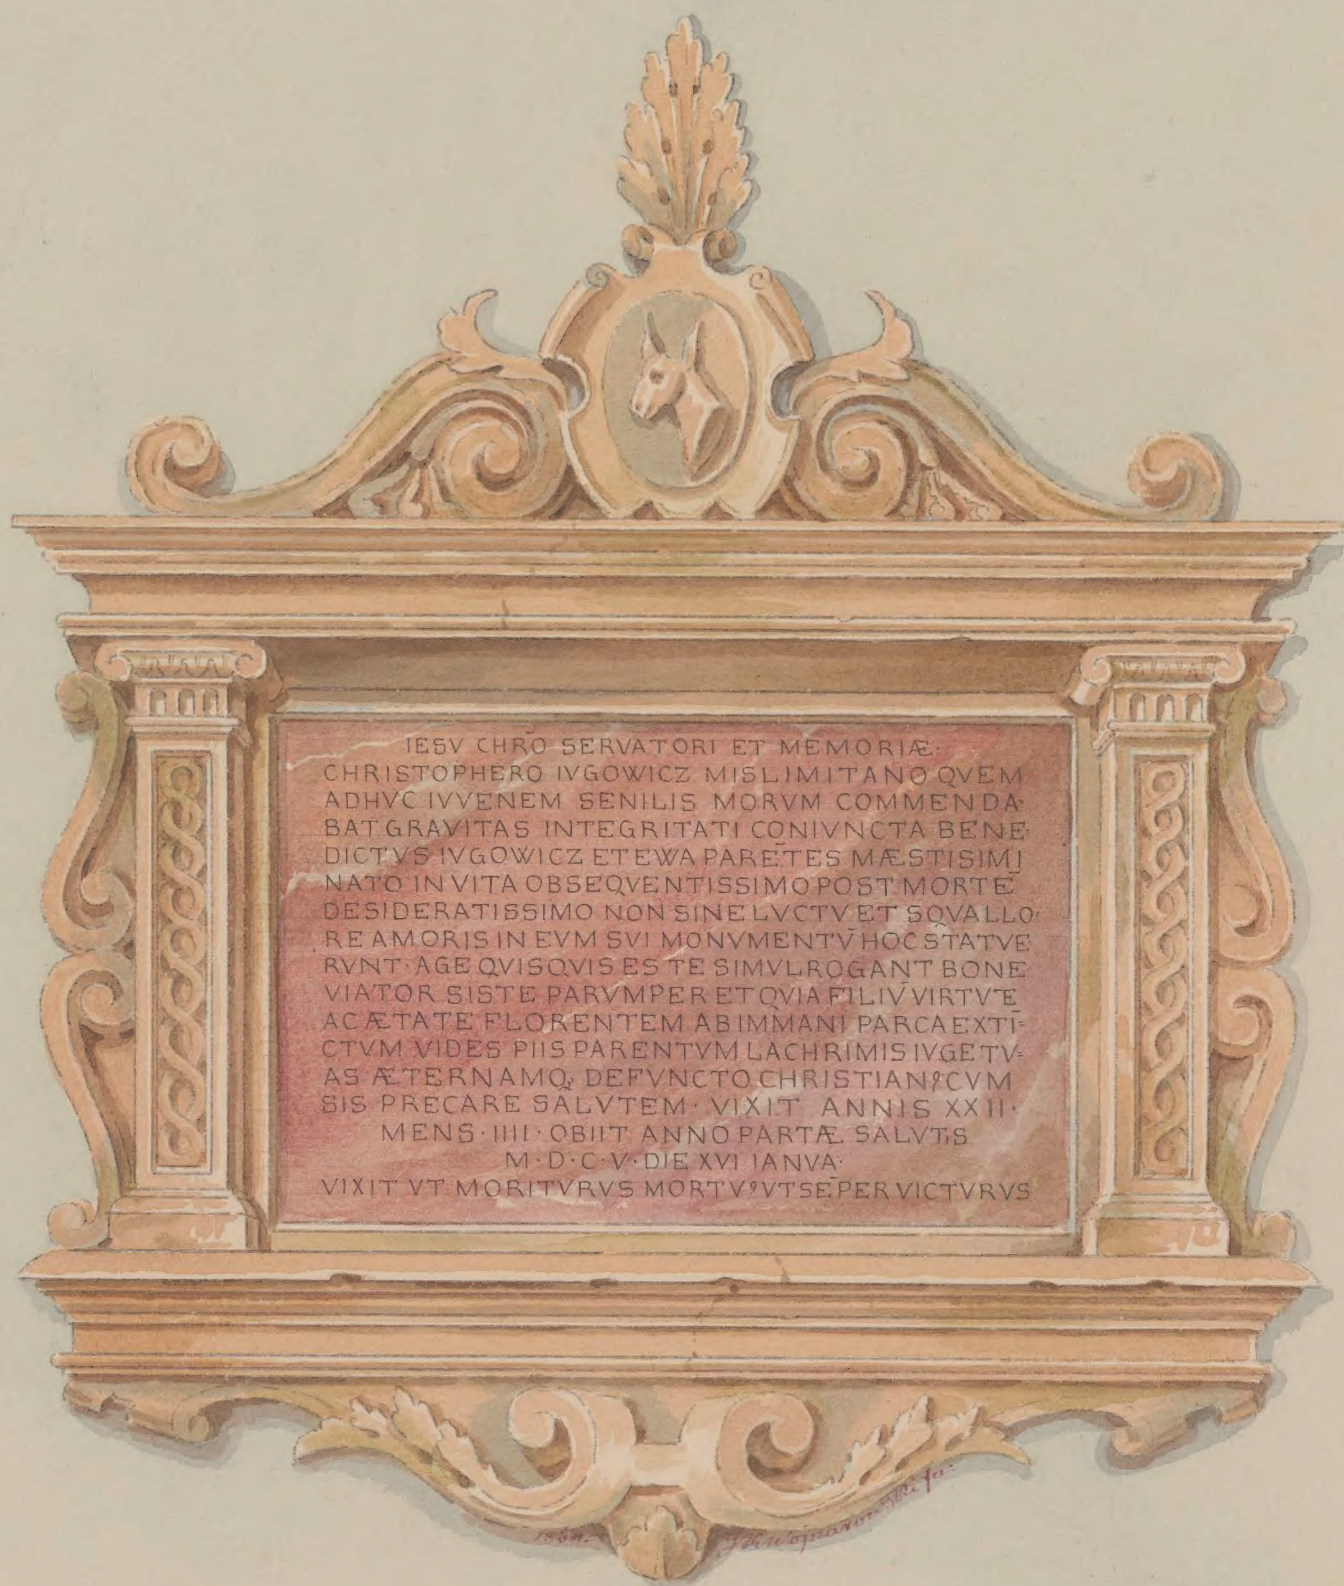 IESV CHRO̅ SERVATORI ET MEMORIÆ·
CHRISTOPHERO IVGOWICZ MISLIMITANO QVEM
ADHVC IVVENEM SENILIS MORVM COMMENDA·
BAT GRAVITAS INTEGRITATI CONIVNCTA BENE·
DICTVS IVGOWICZ ET EWA PARE̅TES MÆSTISIMI
NATO IN VITA OBSEQVENTISSIMO POST MORTE̅
DESIDERATISSIMO NON SINE LVCTV ET SQVALLO·
RE AMORIS IN EVM SVI MONVMENTV̅ HOC STATVE·
RVNT· AGE QVISQVIS ES TE SIMVL ROGANT BONE
VIATOR SISTE PARVMPER ET QVIA FILIV̅ VIRTVTE
AC ÆTATE FLORENTEM AB IMMANI PARCA EXTI̅=
CTVM VIDES PIIS PARENTVM LACHRIMIS IVGE TV=
AS ÆTERNAMQ; DEFVNCTO CHRISTIANꝰ CVM
SIS PRECARE SALVTEM· VIXIT ANNIS XXII·
MENS· IIII· OBIIT ANNO PARTÆ SALVTIS
M·D·C·V· DIE XVI IANVA·
VIXIT VT MORITVRVS MORTVꝰ VT SE̅PER VICTVRVS